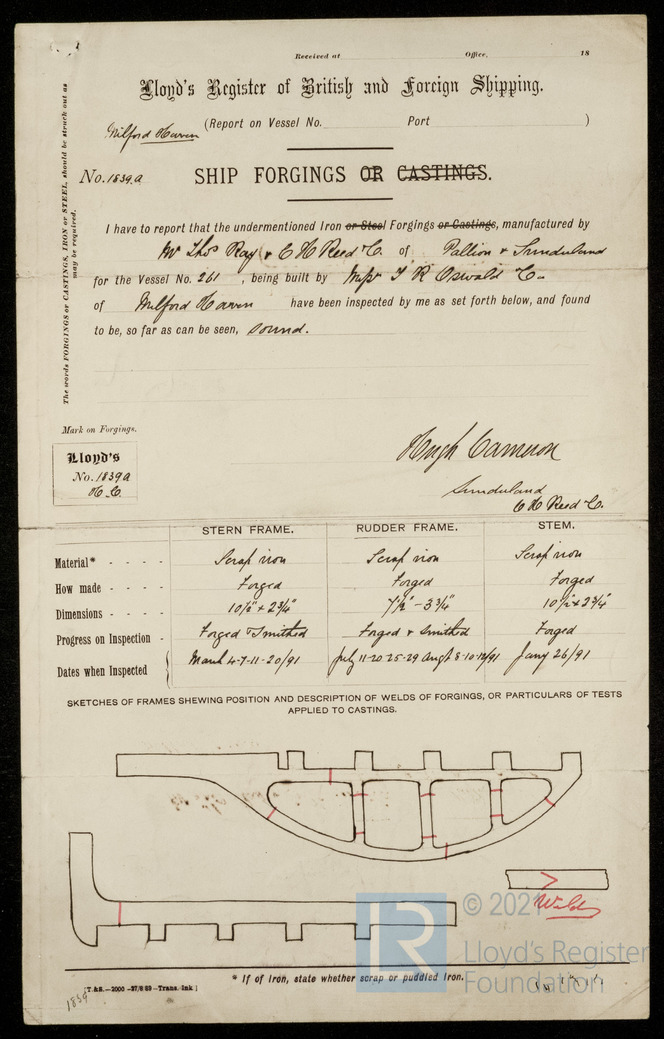 Received at Office, 18
Lloyd's Register of British and Foreign Shipping.
Milford Haven (Report on Vessel No. Port )
No. 1839a SHIP FORGINGS OR CASTINGS.
The words FORGINGS or CASTINGS, IRON or STEEL, should be struck out as
may be required.
I have to report that the undermentioned Iron or Steel Forgings or Castings, manufactured by
Mr Thos Ray & C H Reed & Co. of Pallion & Sunderland
for the Vessel No. 261, being built by Messrs T R Oswald & Co.
of Milford Haven have been inspected by me as set forth below, and found
to be, so far as can be seen, sound.
Mark on Forgings.
Lloyd's
No. 1839a
H.C.
Hugh Cameron
Sunderland
C H Reed & Co.
STERN FRAME. RUDDER FRAME. STEM.
Material* - - - - Scrap iron Scrap iron Scrap iron
How made - - - - Forged Forged Forged
Dimensions - - - - 10½" x 2¾" 7½" - 3¼" 10½ x 2¾"
Progress on Inspection - Forged & Smithed Forged & Smithed Forged
Dates when Inspected { March 4-7-11-20/91 July 11-20 25-29 Augt 8-10-12/91 Jany 26/91
SKETCHES OF FRAMES SHEWING POSITION AND DESCRIPTION OF WELDS OF FORGINGS, OR PARTICULARS OF TESTS
APPLIED TO CASTINGS.
Welds
© 2021
Lloyd's Register
Foundation
LR
* If of Iron, state whether scrap or puddled Iron.
[T.&S.—2000—27/8 89—Trans. Ink]
1839